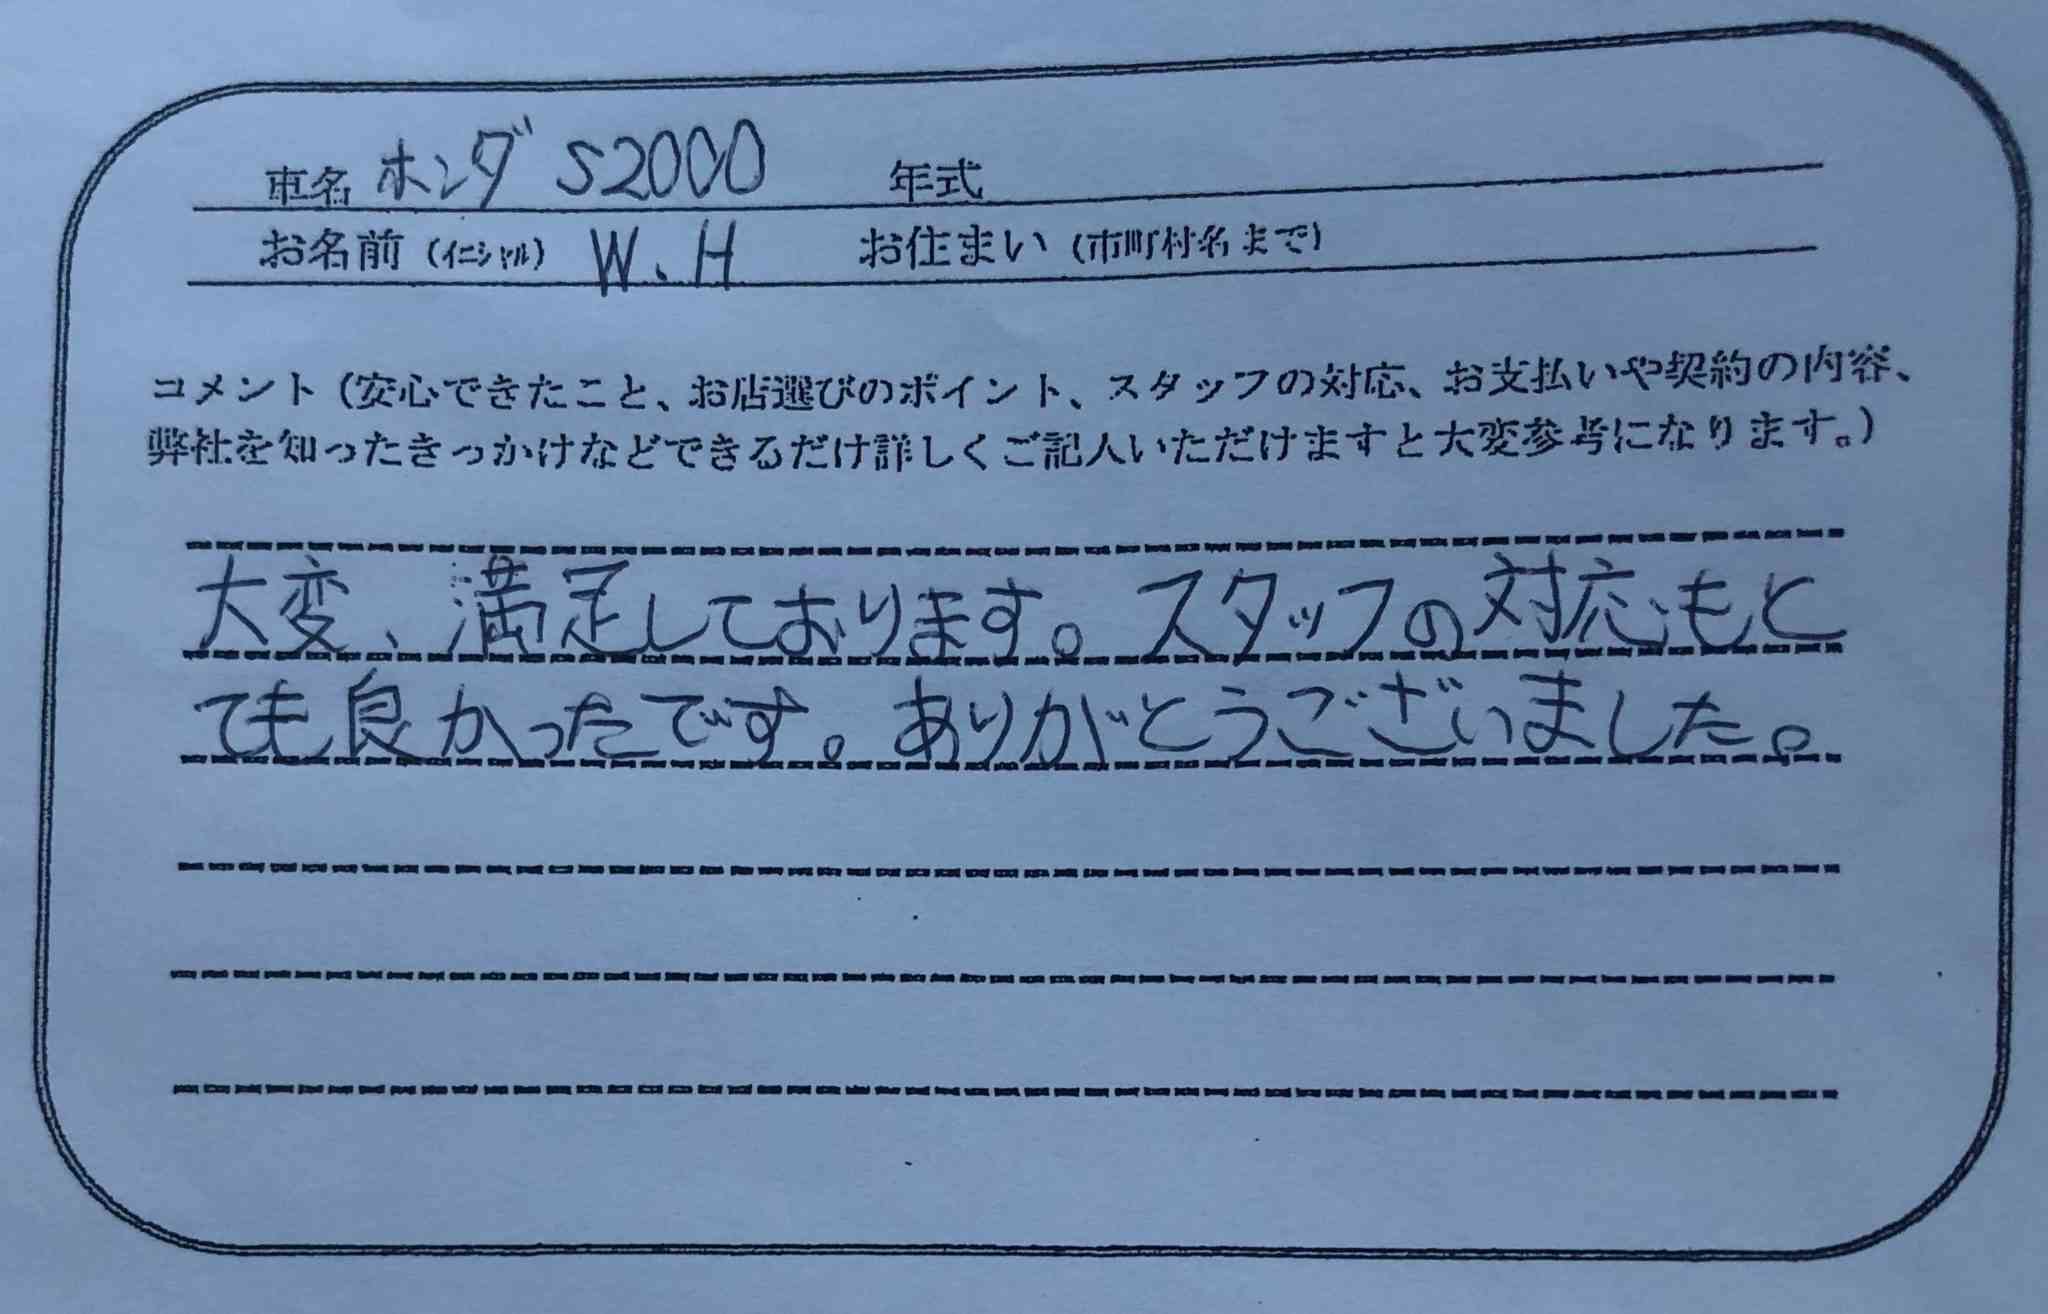 車名 ホンダ S2000 年式
お名前（イニシャル） W、H お住まい（市町村名まで）
コメント（安心できたこと、お店選びのポイント、スタッフの対応、お支払いや契約の内容、
弊社を知ったきっかけなどできるだけ詳しくご記入いただけますと大変参考になります。）
大変、満足しております。スタッフの対応もと
ても良かったです。ありがとうございました。